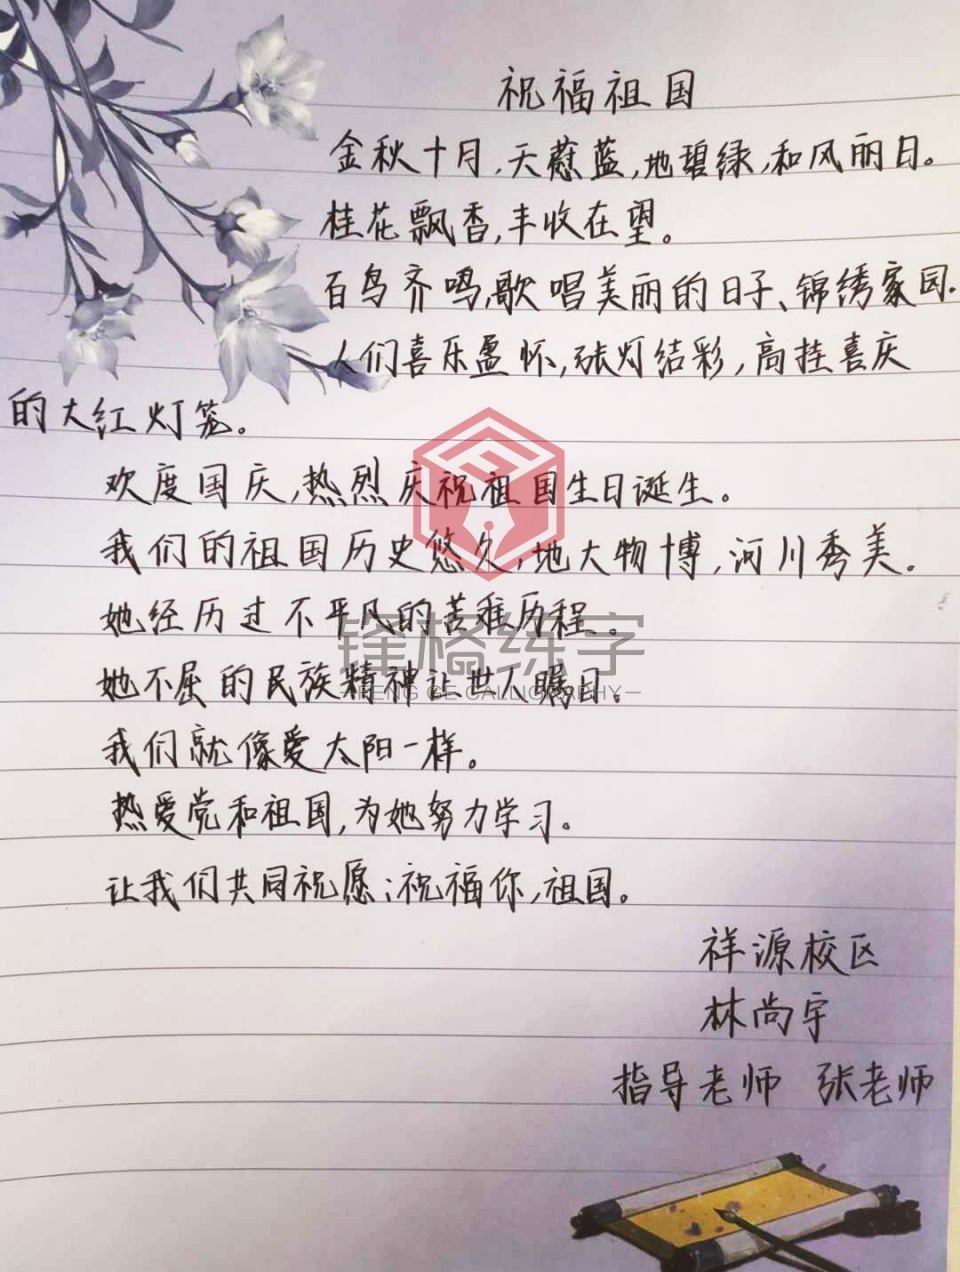 祝福祖国
金秋十月,天蔚蓝,地碧绿,和风丽日。
桂花飘香,丰收在望。
百鸟齐鸣,歌唱美丽的日子、锦绣家园.
人们喜乐盈怀,张灯结彩,高挂喜庆
的大红灯笼。
欢度国庆,热烈庆祝祖国生日诞生。
我们的祖国历史悠久,地大物博,河川秀美。
她经历过不平凡的苦难历程。
她不屈的民族精神让世人瞩目。
我们就像爱太阳一样。
热爱党和祖国,为她努力学习。
让我们共同祝愿;祝福你,祖国。
祥源校区
林尚宇
指导老师 张老师
锋格练字
FENG GE CALLIGRAPHY